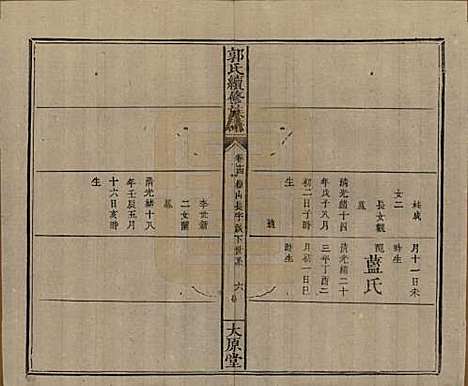 月十一日未
時生
藍氏
清光緒二十
三年丁酉二
月初一日巳
時生
妵成
女二
長女觀
清光緒十四
年戊子八月
初二日子時
生
郭氏續修族譜
卷十四
長字派下世系
六
太原堂
李世
二女蘭
清光緒十八
年壬辰五月
十六日亥時
生